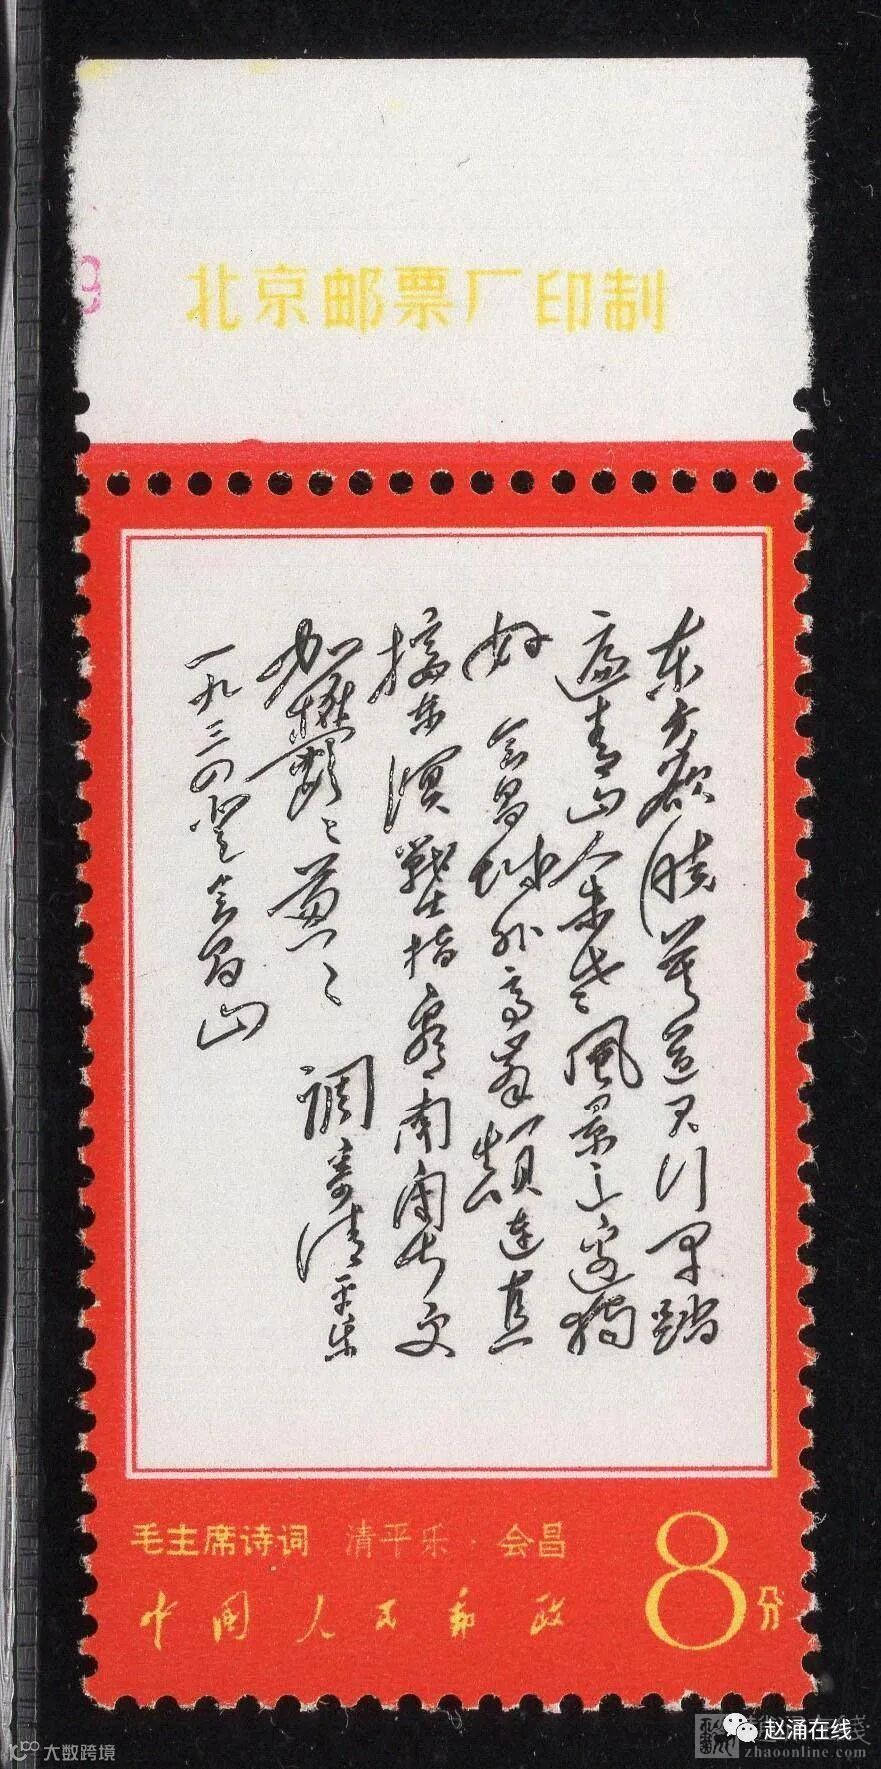 北京邮票厂印制
东方欲晓莫道君行早踏
遍青山人未老风景这边独
好 会昌城外高峰颠连直
接东溟战士指看南粤更
加郁郁葱葱 调寄清平乐
一九三四登会昌山
毛主席诗词 清平乐·会昌
中国人民邮政
8分
赵涌在线
zhaoonline.com
大数跨境